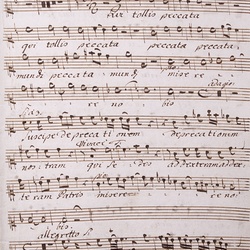 Qui tollis peccata
qui tollis peccata peccata peccata
mundi peccata mundi misere re
Adagio
re no bis
Suscipe deprecationem deprecationem
nostram qui sedes ad dexteram ad dex
teram Patris miserere no
bis
allegretto